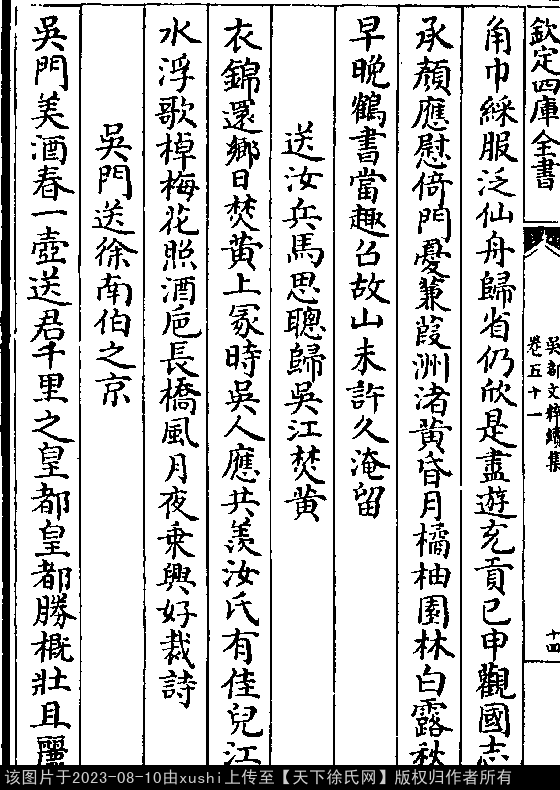 欽定四庫全書
吳都文粹續集
卷五十一
十四
角巾綵服泛仙舟歸省仍欣是盡遊充貢已申觀國志
承顏應慰倚門憂蒹葭洲渚黃昏月橘柚園林白露秋
早晚鶴書當趣召故山未許久淹留
送汝兵馬思聰歸吳江焚黃
衣錦還鄉日焚黃上冢時吳人應共羨汝氏有佳兒江
水浮歌棹梅花照酒巵長橋風月夜乗興好裁詩
吳門送徐南伯之京
吳門美酒春一壺送君千里之皇都皇都勝概壯且麗
该图片于2023-08-10由xushi上传至【天下徐氏网】版权归作者所有